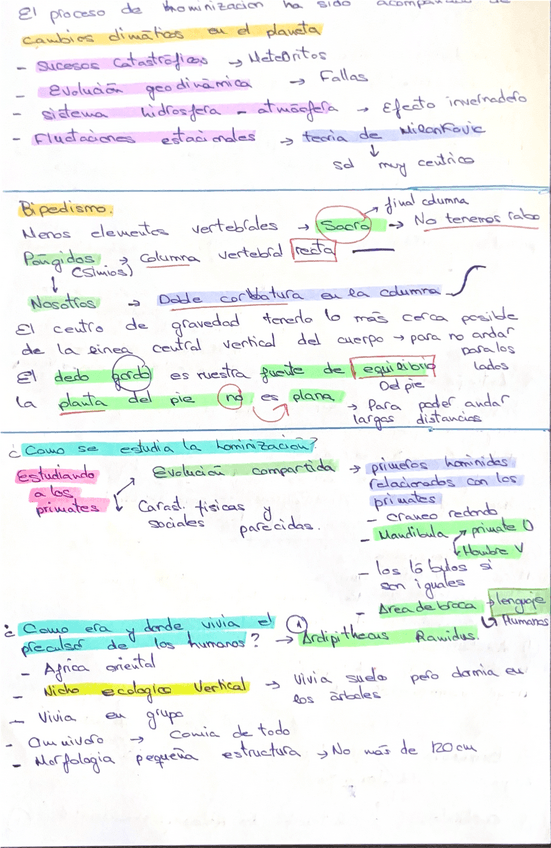 El proceso de hominización ha sido acompañado de
cambios climáticos en el planeta
- Sucesos catastróficos → Meteoritos
- Evolución geodinámica → Fallas
- sistema hidrosfera - atmósfera → Efecto invernadero
- Fluctaciones estacionales → teoria de Milankovic
↓
sol muy centrico
Bipedismo.
final columna
Menos elementos vertebrales → Sacro → No tenemos rabo
Póngidos → columna vertebral recta
(Simios)
↓
Nosotros → Doble corbatura en la columna
El centro de gravedad tenerlo lo más cerca posible
de la linea central vertical del cuerpo → para no andar
para los
lados
El dedo gordo es nuestra fuente de equilibrio
Del pie
la planta del pie no es plana
→ Para poder andar
largas distancias
¿Como se estudia la hominización?
estudiando
a los
primates
Evolución compartida → primeros hominidos
relacionados con los
primates
Caract. físicas y
sociales parecidas.
- craneo redondo
- Mandibula → primate U
Hombre V
- los lóbulos si
son iguales
- Area de broca → lenguaje
↳ Humanos
¿Como era y donde vivia el
preculsor de los humanos? → ① Ardipithecus Ramidus.
- Africa oriental
- Nicho ecologico Vertical → Vivia suelo pero dormia en
los árboles
- Vivia en grupo
- Omnivoro → Comia de todo
- Morfologia pequeña estructura → No más de 120 cm